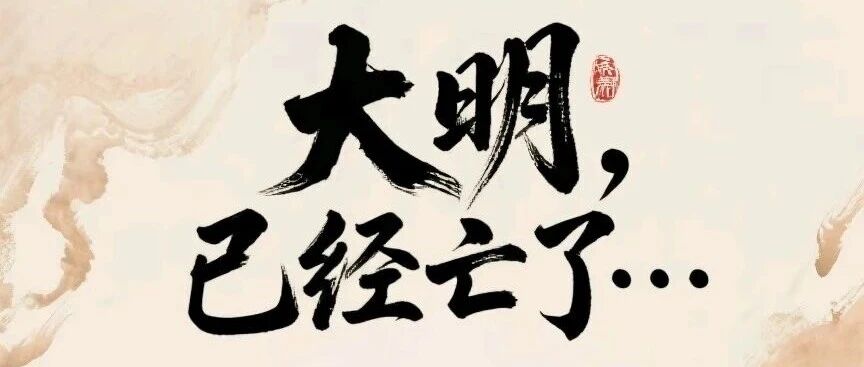 大明，
已经亡了…